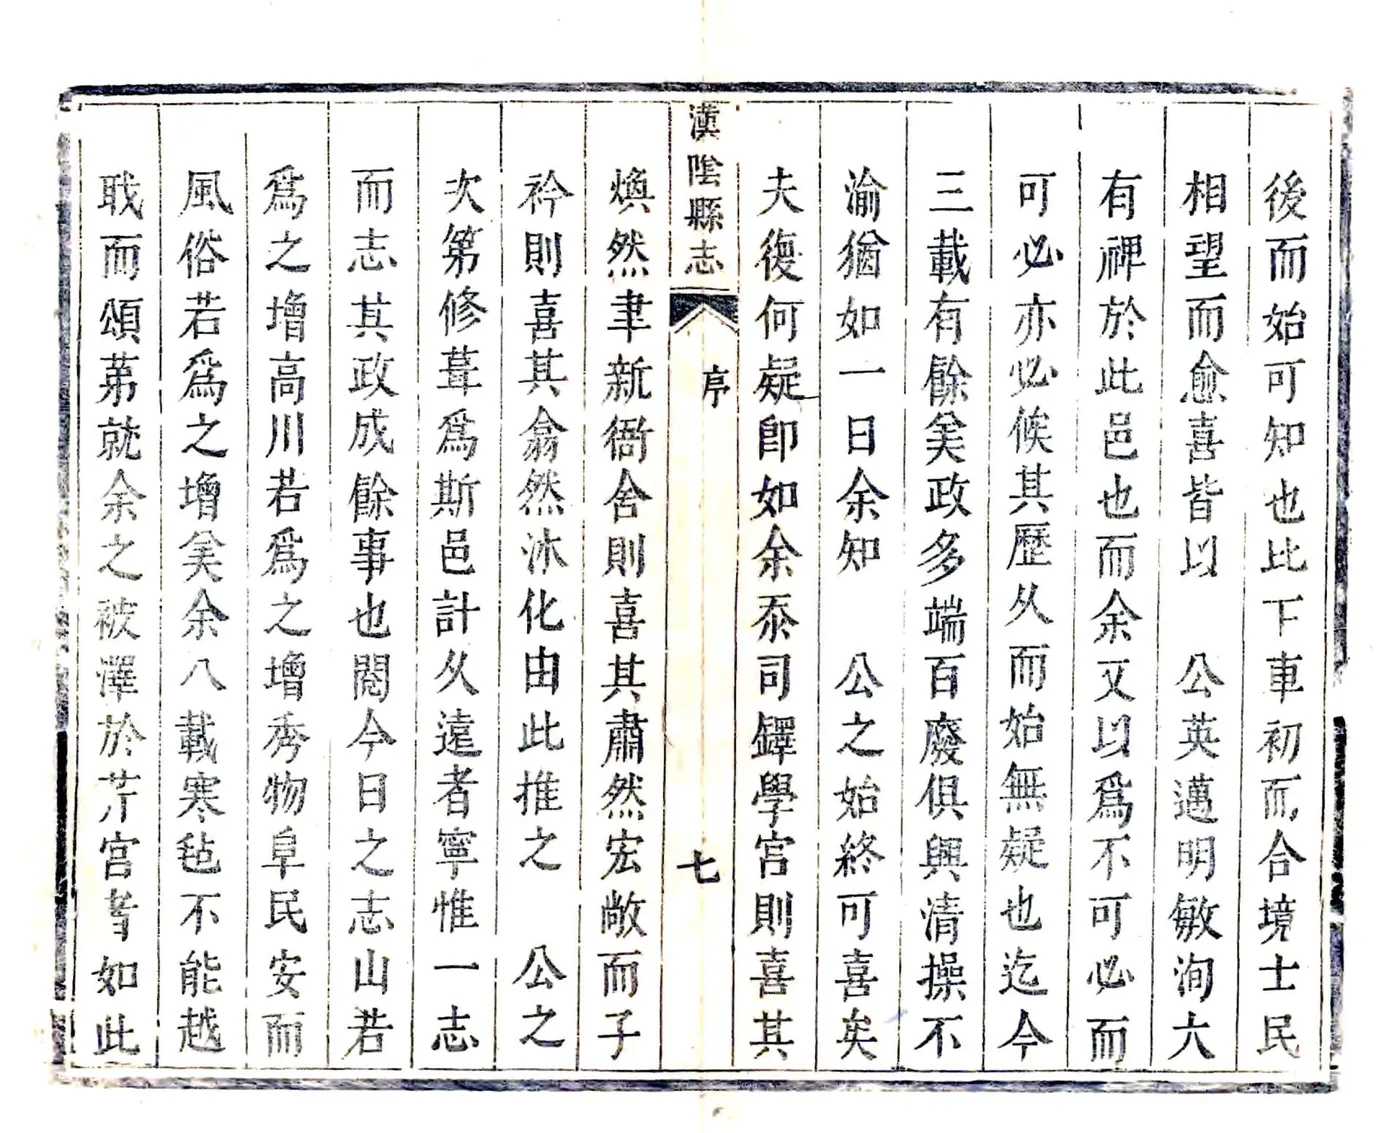 後而始可知也比下車初而合境士民
相望而愈喜皆以　公英邁明敏洵大
有裨於此邑也而余又以爲不可必而
可必亦必候其歷久而始無疑也迄今
三載有餘矣政多端百廢俱興清操不
渝猶如一日余知　公之始終可喜矣
夫復何疑卽如余忝司鐸學宮則喜其
漢陰縣志
序
七
煥然聿新衙舍則喜其肅然宏敞而子
衿則喜其翕然沐化由此推之　公之
次第修葺爲斯邑計久遠者寧惟一志
而志其政成餘事也閱今日之志山若
爲之增高川若爲之增秀物阜民安而
風俗若爲之增矣余八載寒毡不能越
戝而頌苐就余之被澤於芹宮者如此